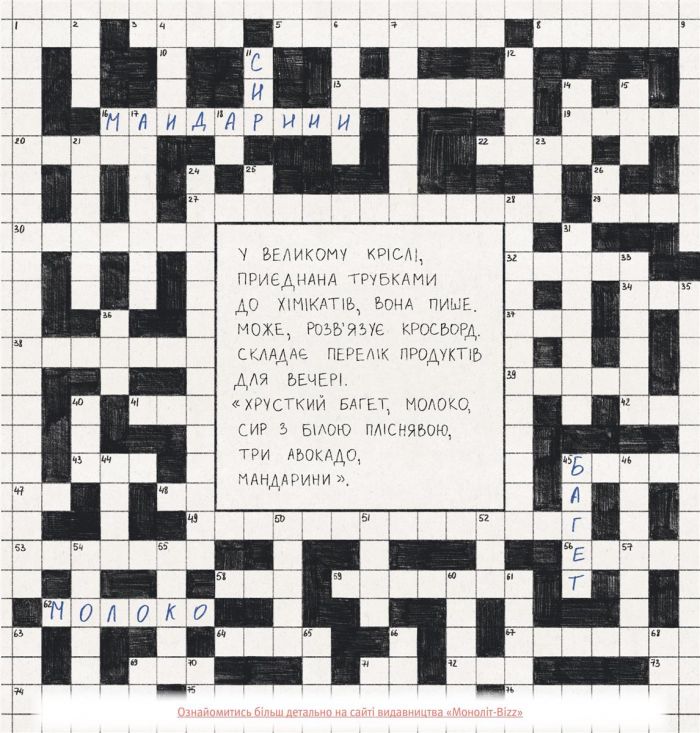 1 2 3 4 5 6 7 8 9
10 11 12
СИР
13 14 15
16 17 18 19
МАНДАРИНИ
20 21 22 23
24 25 26
27 28 29
30 31
У ВЕЛИКОМУ КРІСЛІ,
ПРИЄДНАНА ТРУБКАМИ
ДО ХІМІКАТІВ, ВОНА ПИШЕ.
МОЖЕ, РОЗВ'ЯЗУЄ КРОСВОРД.
СКЛАДАЄ ПЕРЕЛІК ПРОДУКТІВ
ДЛЯ ВЕЧЕРІ.
«ХРУСТКИЙ БАГЕТ, МОЛОКО,
СИР З БІЛОЮ ПЛІСНЯВОЮ,
ТРИ АВОКАДО,
МАНДАРИНИ».
32 33
34 35
36 37
38
39
40 41 42
43 44 45 46
БАГЕТ
47 48
49 50 51 52
53 54 55 56 57
58 59 60 61
62
МОЛОКО
63 64 65 66 67 68
69 70 71 72 73
74 75 76
Ознайомитись більш детально на сайті видавництва «Моноліт-Bizz»